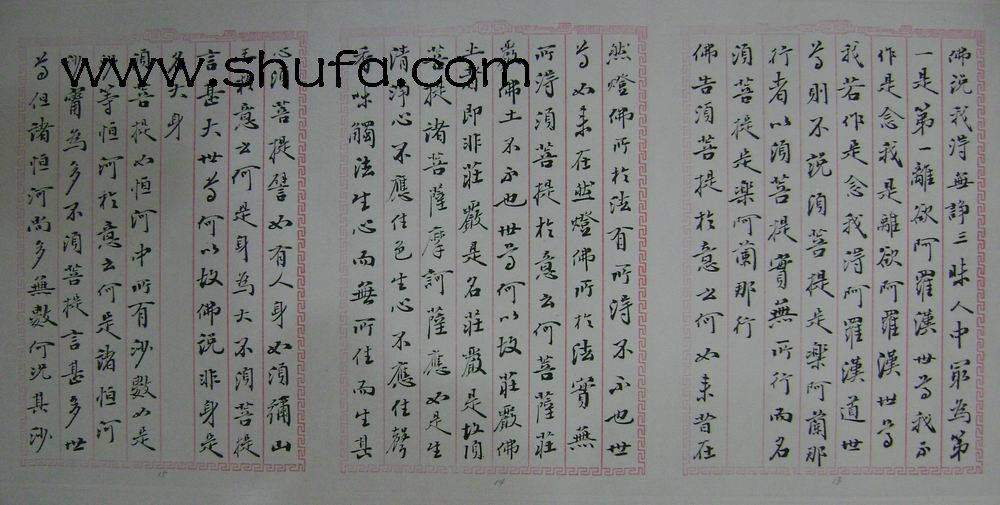 佛說我淂無諍三昧人中㝡為第
一是第一離欲阿羅漢世尊我不
作是念我是離欲阿羅漢世尊
我若作是念我淂阿羅漢道世
尊則不說須菩提是樂阿蘭那
行者以須菩提實無所行而名
須菩提是樂阿蘭那行
佛告須菩提於意云何如来昔在
13
然燈佛所於法有所淂不不也世
尊如来在然燈佛所於法實無
所淂須菩提於意云何菩薩莊
嚴佛土不不也世尊何以故莊嚴佛
土者即非莊嚴是名莊嚴是故須
菩提諸菩薩摩訶薩應如是生
清淨心不應住色生心不應住聲
香味觸法生心而無所住而生其
14
心須菩提譬如有人身如須彌山
王於意云何是身為大不須菩提
言甚大世尊何以故佛說非身是
名大身
須菩提如恒河中所有沙數如是
沙等恒河於意云何是諸恒河
沙寧為多不須菩提言甚多世
尊但諸恒河尚多無數何況其沙
15
www.shufa.com